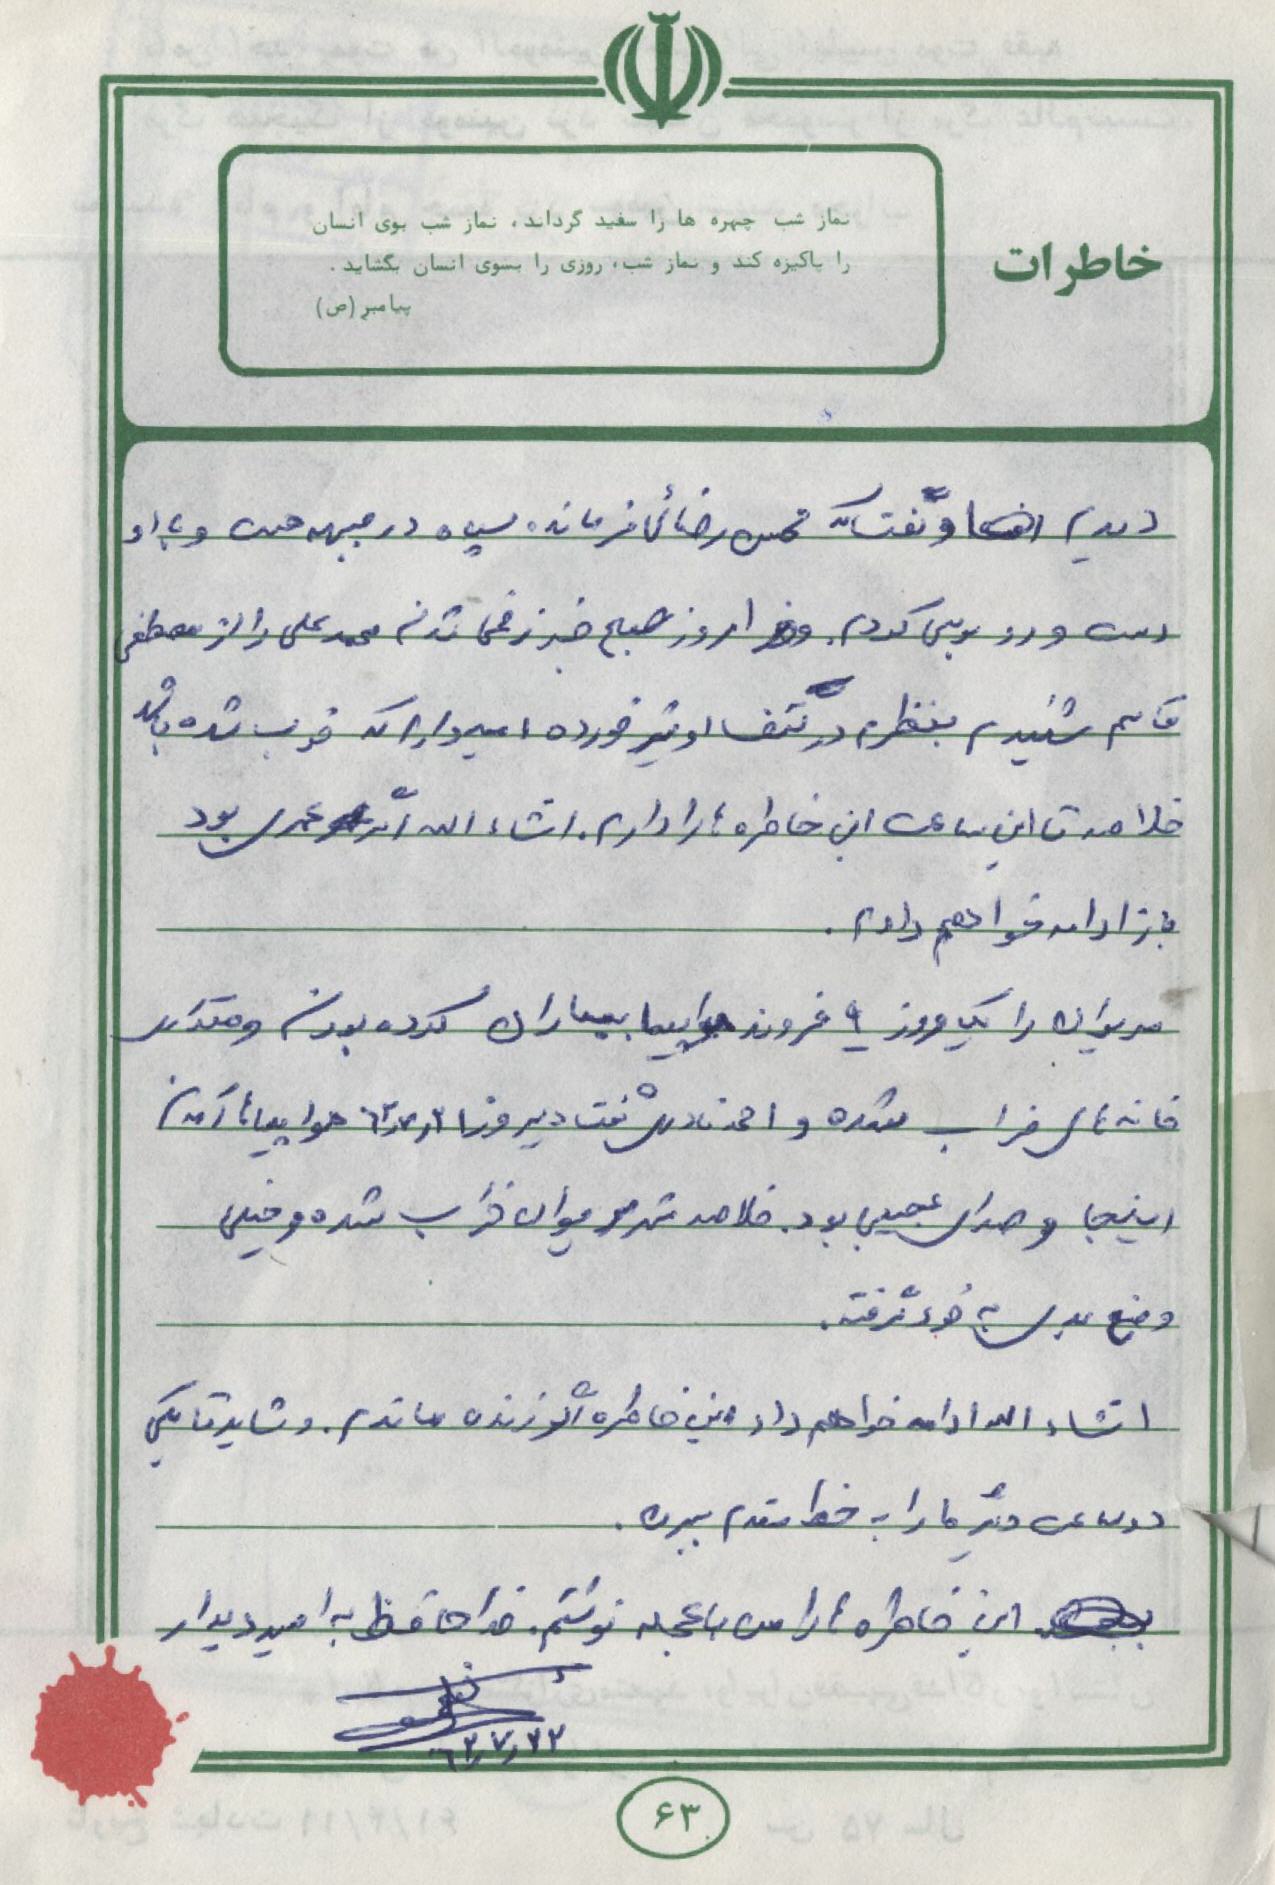 خاطرات
نماز شب چهره ها را سفید گرداند، نماز شب بوی انسان
را پاکیزه کند و نماز شب، روزی را بسوی انسان بگشاید.
پیامبر (ص)
دیدم و گفت که محسن رضائی فرمانده سپاه در جبهه هست و با او
دست و رو بوسی کردم. امروز صبح خبر زخمی شدن محمد علی را از مصطفی
قاسم شنیدم بنظرم در کتف او تیر خورده امیدوارم که خوب شده باشد
خلاصه تا این ساعت این خاطره ها را دارم. انشاء الله اگر عمری بود
باز ادامه خواهم داد.
مریوان را یک روز ۹ فروند هواپیما بمباران کرده بودن و مقداری
خانه های خراب شده و احمد نادری گفت دیروز ۶۲٫۷٫۲۱ هواپیماها آمدن
اینجا و صدای عجیبی بود. خلاصه شهر مریوان خراب شده و خیلی
وضع بدی به خود گرفته.
انشاء الله ادامه خواهم داد این خاطره اگر زنده ماندم. و شاید تا یکی
دو ساعت دیگر ما را به خط مقدم ببرن.
این خاطره ها را من با عجله نوشتم. خدا حافظ به امید دیدار
۶۲٫۷٫۲۲
۶۳